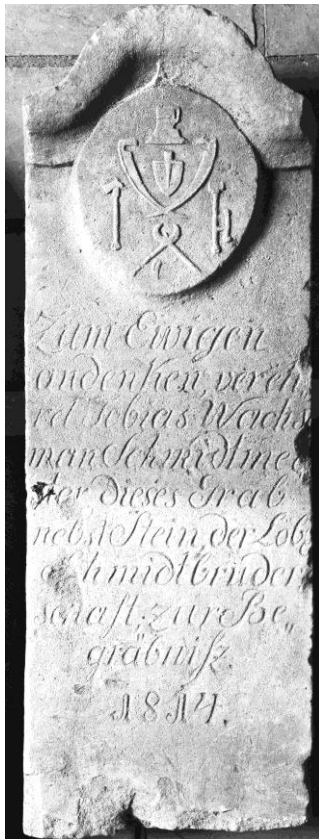 Zum Ewigen
andenken, vereh
ret Tobias Wachs
man Schmidtmei
ster dieses Grab
nebst Stein, der Löb:
Schmidtbrüder
schaft, zur Be„
gräbniß.
1814.